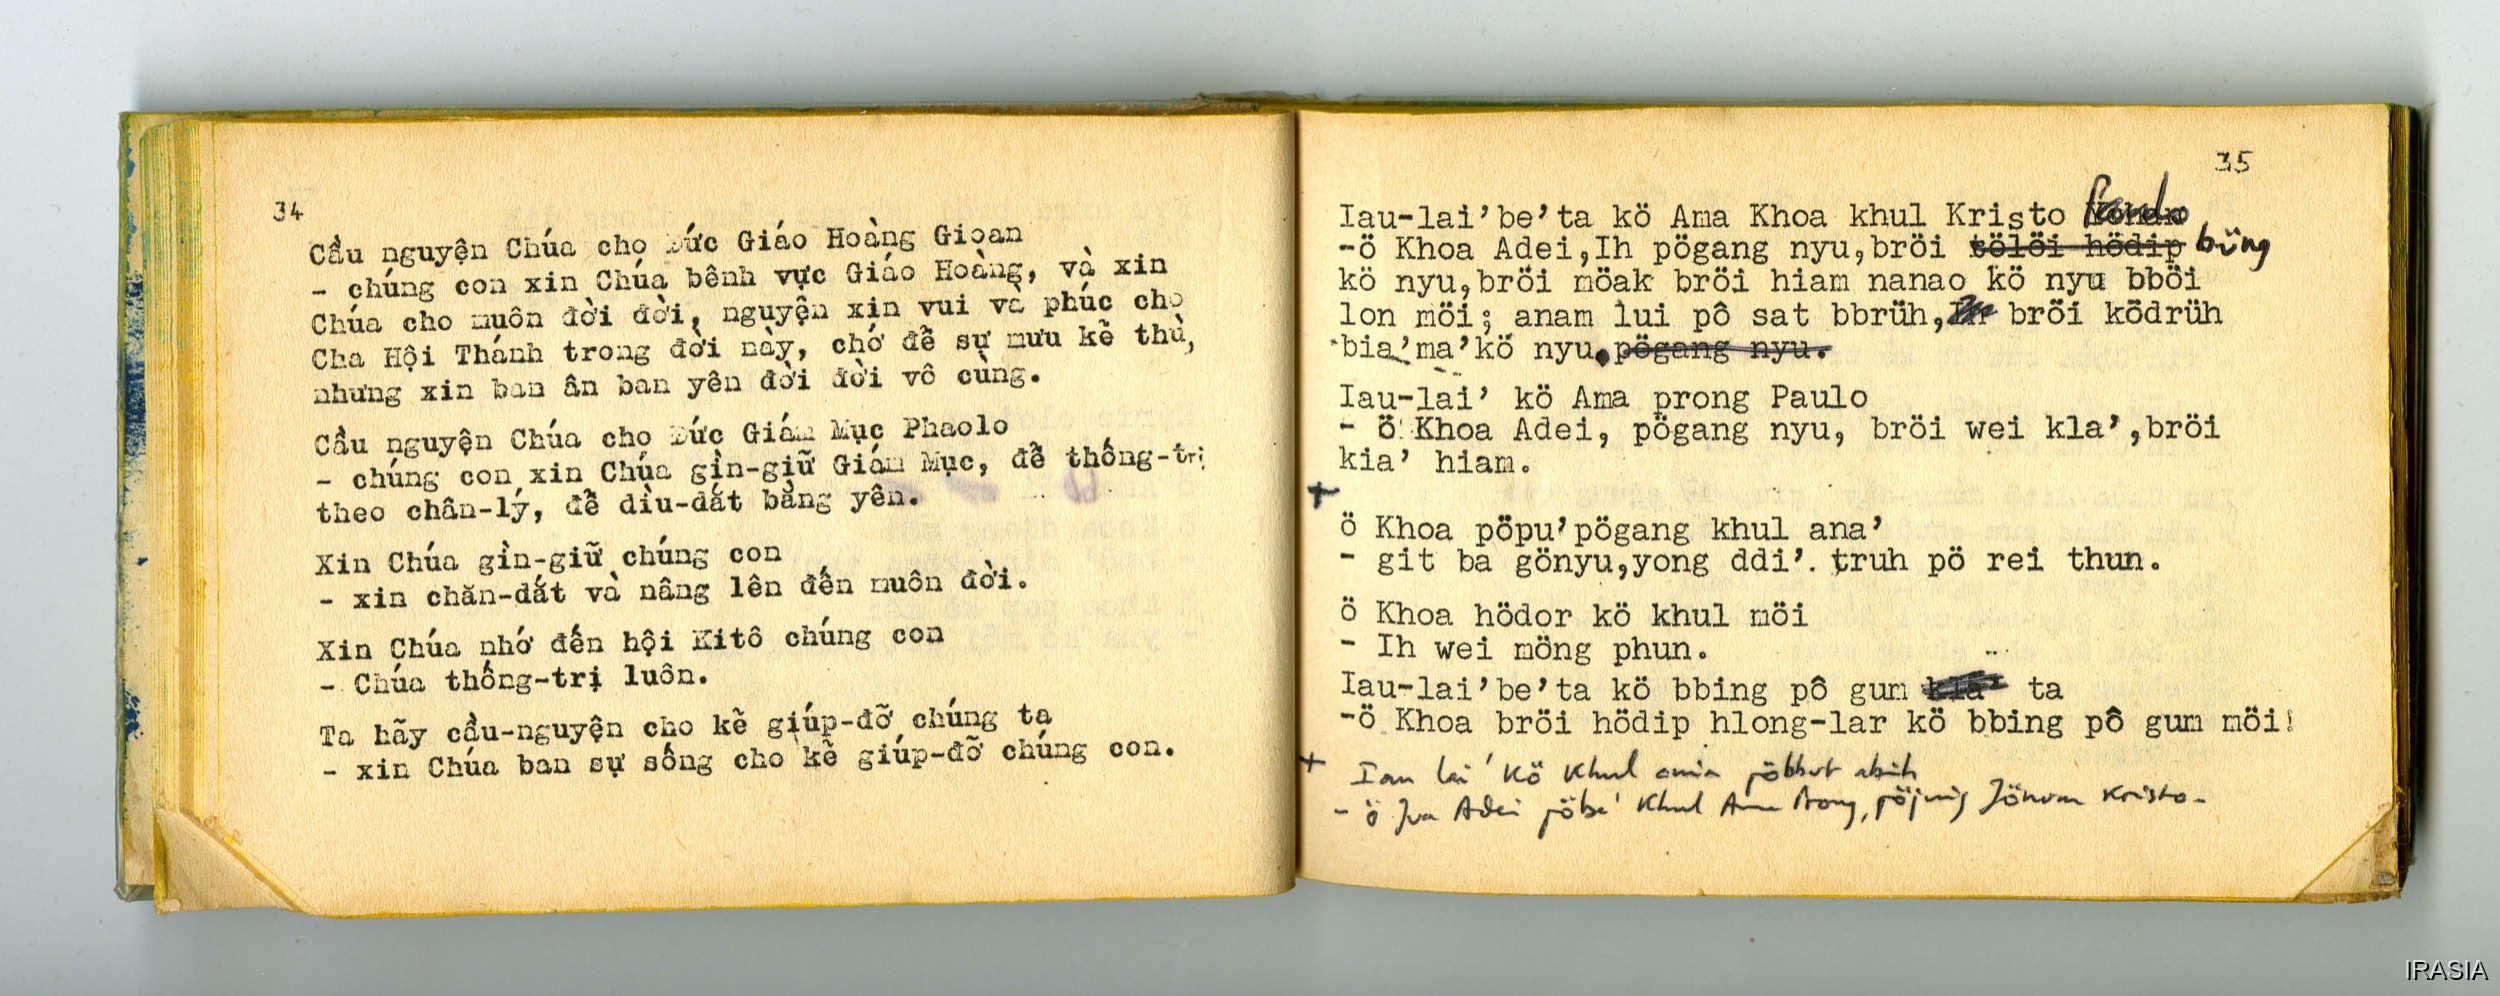 34
Cầu nguyện Chúa cho Đức Giáo Hoàng Gioan
- chúng con xin Chúa bênh vực Giáo Hoàng, và xin
Chúa cho muôn đời đời, nguyện xin vui và phúc cho
Cha Hội Thánh trong đời này, chớ để sự mưu kẻ thù,
nhưng xin ban ân ban yên đời đời vô cùng.
Cầu nguyện Chúa cho Đức Giám Mục Phaolo
- chúng con xin Chúa gìn-giữ Giám Mục, để thống-trị
theo chân-lý, để dìu-dắt bằng yên.
Xin Chúa gìn-giữ chúng con
- xin chăn-dắt và nâng lên đến muôn đời.
Xin Chúa nhớ đến hội Kitô chúng con
- Chúa thống-trị luôn.
Ta hãy cầu-nguyện cho kẻ giúp-đỡ chúng ta
- xin Chúa ban sự sống cho kẻ giúp-đỡ chúng con.
35
Iau-lai'be'ta kö Ama Khoa khul Kristo
-ö Khoa Adei,Ih pögang nyu,bröi tölöi hödip büng
kö nyu,bröi möak bröi hiam nanao kö nyu bböi
lon möi; anam lui pô sat bbrüh, bröi ködrüh
bia'ma'kö nyu.pögang nyu.
Iau-lai' kö Ama prong Paulo
- ö Khoa Adei, pögang nyu, bröi wei kla',bröi
kia' hiam.
+
ö Khoa pöpu'pögang khul ana'
- git ba gönyu,yong ddi'. truh pö rei thun.
ö Khoa hödor kö khul möi
- Ih wei möng phun.
Iau-lai'be'ta kö bbing pô gum kla' ta
-ö Khoa bröi hödip hlong-lar kö bbing pô gum möi!
+ Iau lai' kö khul pöbbut abih
- ö Adei khul Ama Prong, Kristo-
IRASIA